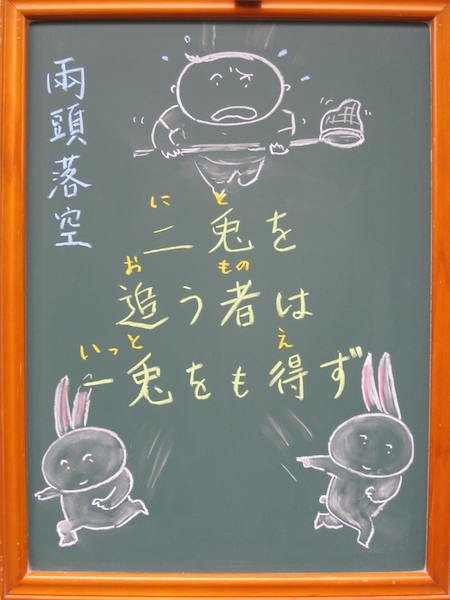 兩頭落空
にと
二兎を
おもの
追う者は
いっとえ
一兎をも得ず